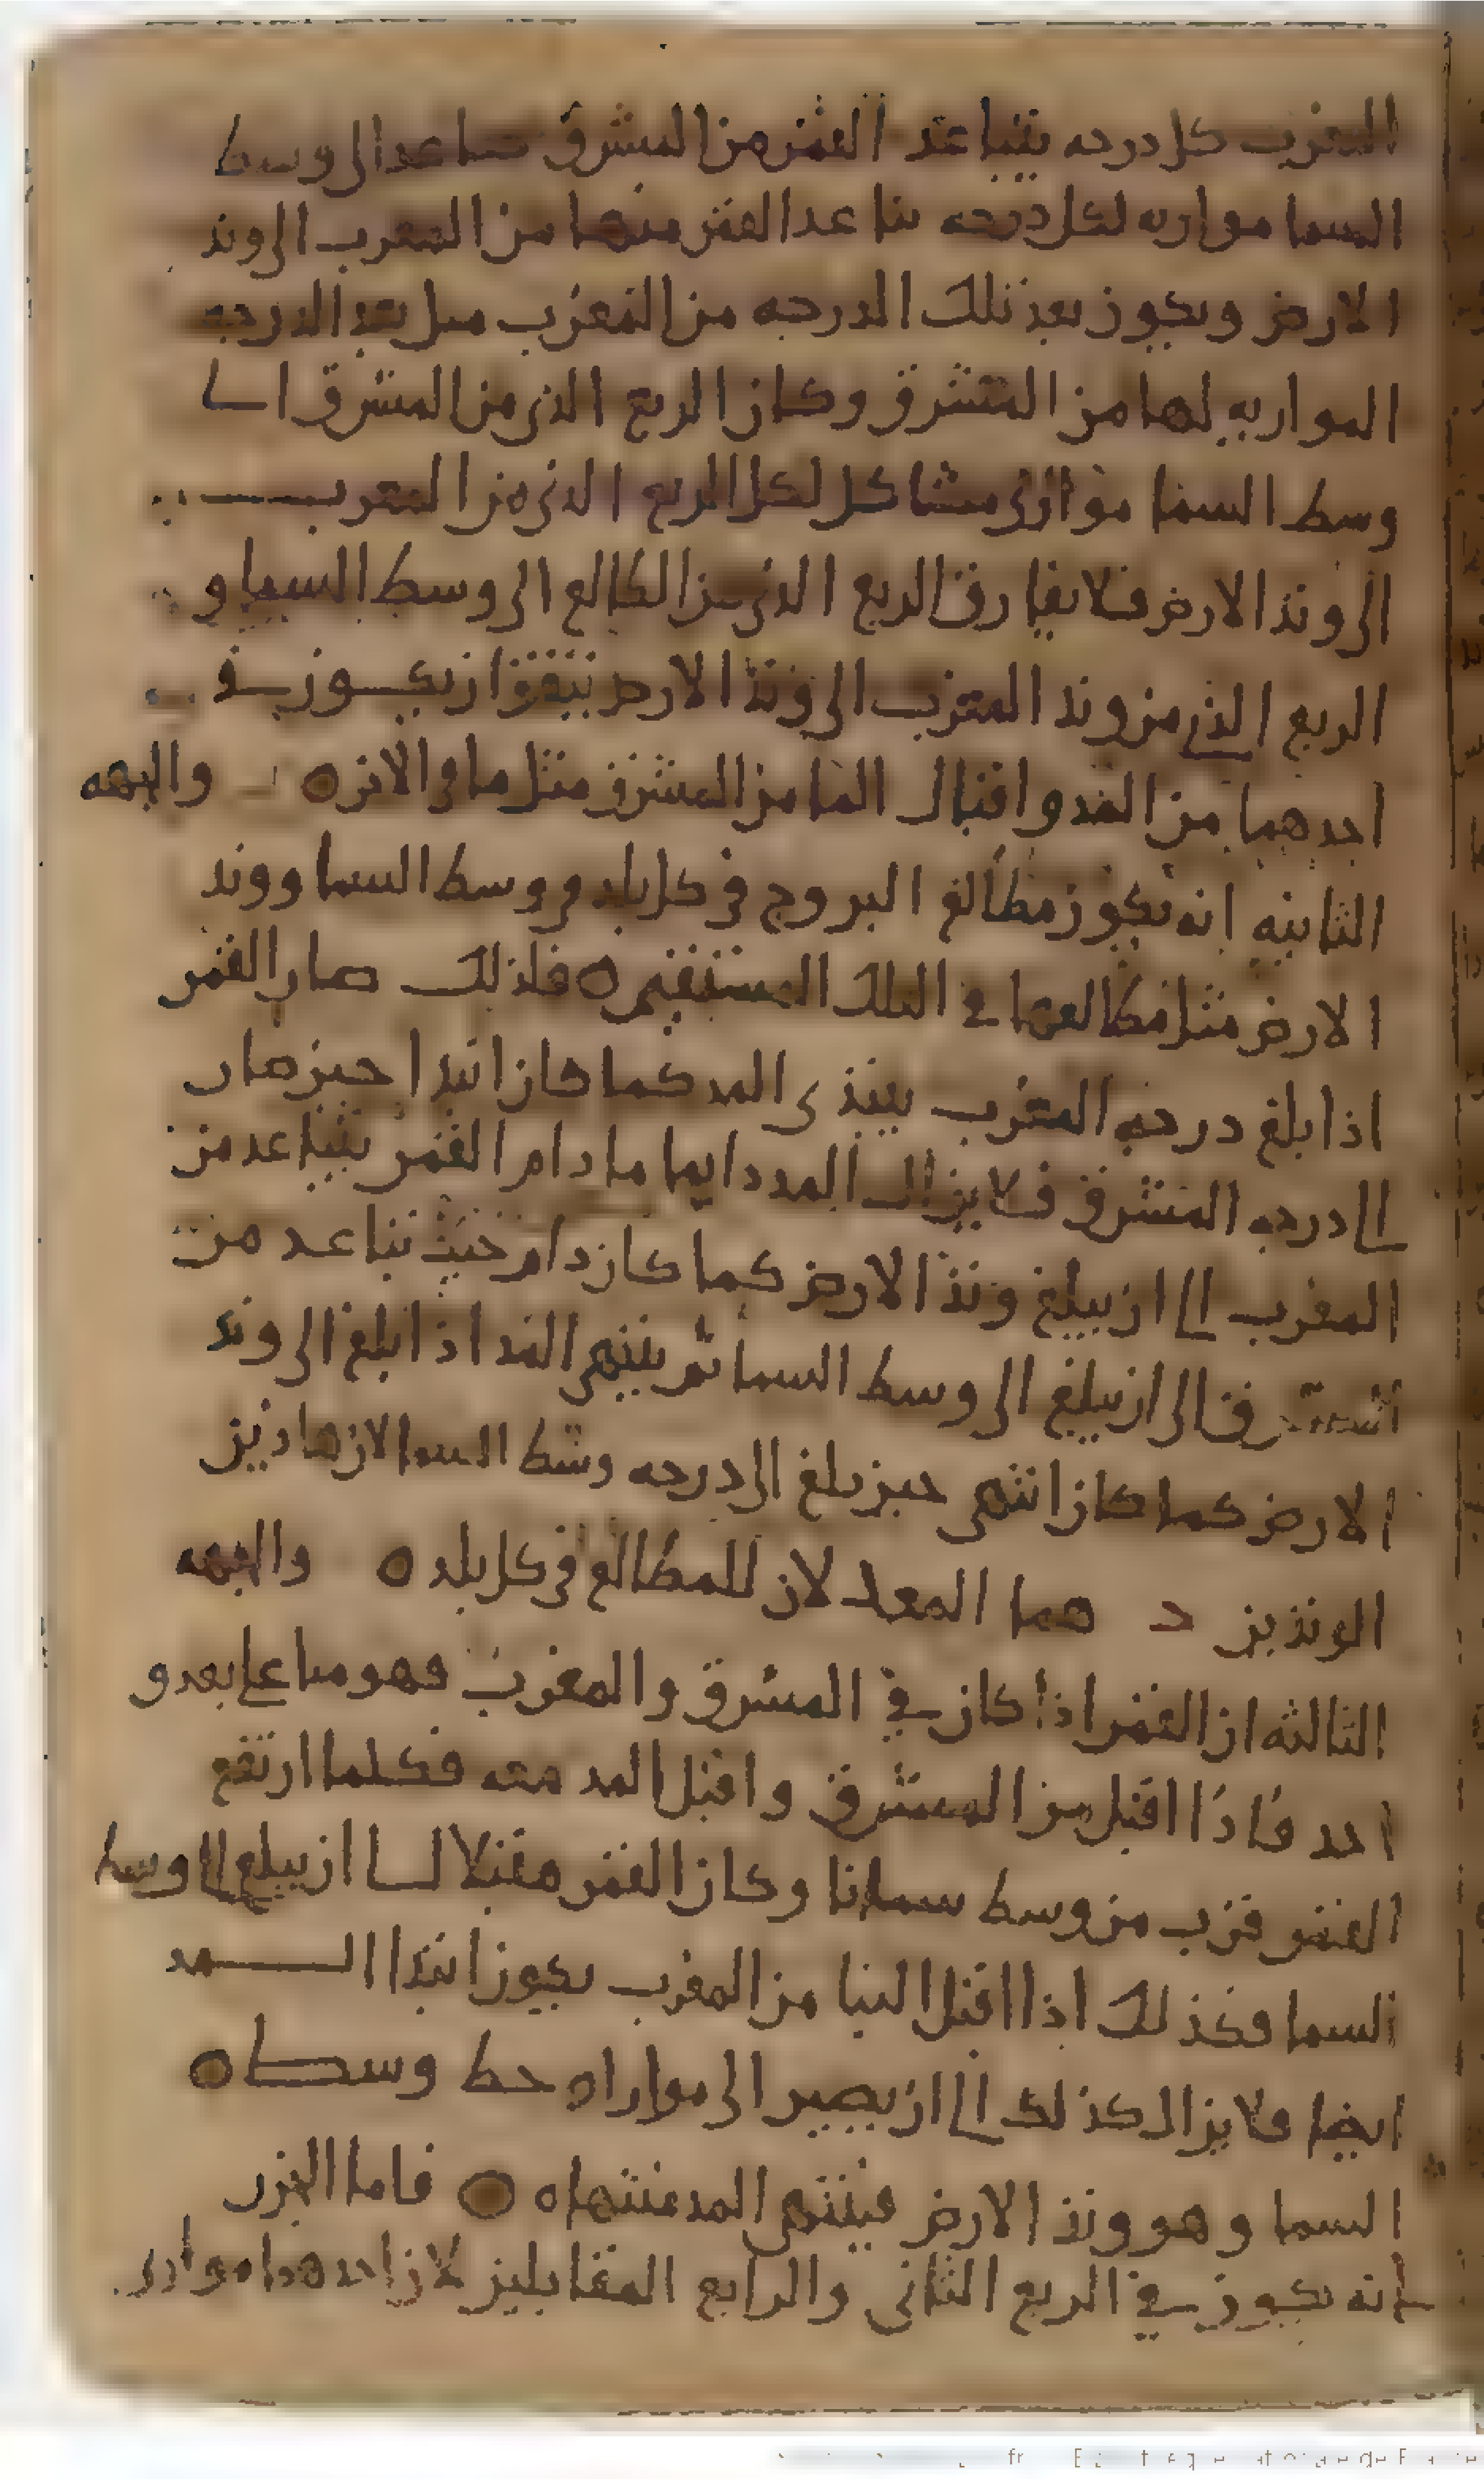 المغرب كل درجه يتباعد القمر من المشرق صاعدا الى وسط
السما موازيه لكل درجه يتباعد القمر منها من المغرب الى وتد
الارض ويكون بعد تلك الدرجه من المغرب مثل بعد الدرجه
الموازيه لها من المشرق وكان الربع الذى من المشرق الى
وسط السما موازى مشاكل لكل الربع الذى من المغرب
الى وتد الارض فلا يفارق الربع الذى من الطالع الى وسط السما و
الربع الذى من وتد المغرب الى وتد الارض يتفق ان يكون فى
احدهما من المد واقبال الما من المشرق مثل ما فى الاخر ٥ والجهه
الثانيه انه يكون مطالع البروج فى كل بلد فى وسط السما ووتد
الارض مثل مطالعها فى الفلك المستقيم ٥ فلذلك صار القمر
اذا بلغ درجه المغرب يبتدى المد كما كان ابتدا حين صار
الى درجه المشرق فلا يزال المد دايما ما دام القمر يتباعد من
المغرب الى ان يبلغ وتد الارض كما كان دام حيث تباعد من
المشرق الى ان يبلغ الى وسط السما ثم ينتهى المد اذا بلغ الى وتد
الارض كما كان انتهى حين بلغ الى درجه وسط السما لان هاذين
الوتدين د هما المعدلان للمطالع فى كل بلد ٥ والجهه
الثالثه ان القمر اذا كان فى المشرق والمغرب فهو منا على بعد و
احد فاذا اقبل من المشرق واقبل المد معه فكلما ارتفع
القمر قرب من وسط سماانا وكان القمر مقبلا لنا ان يبلغ الى وسط
السما فكذلك اذا اقبل الينا من المغرب يكون ابتدا المد
ايضا فلا يزال كذلك الى ان يصير الى موازاه خط وسط ٥
السما وهو وتد الارض فينتهى المد منتهاه ٥ فاما الجزر
فانه يكون فى الربع الثانى والرابع المتقابلين لان احدهما موازى